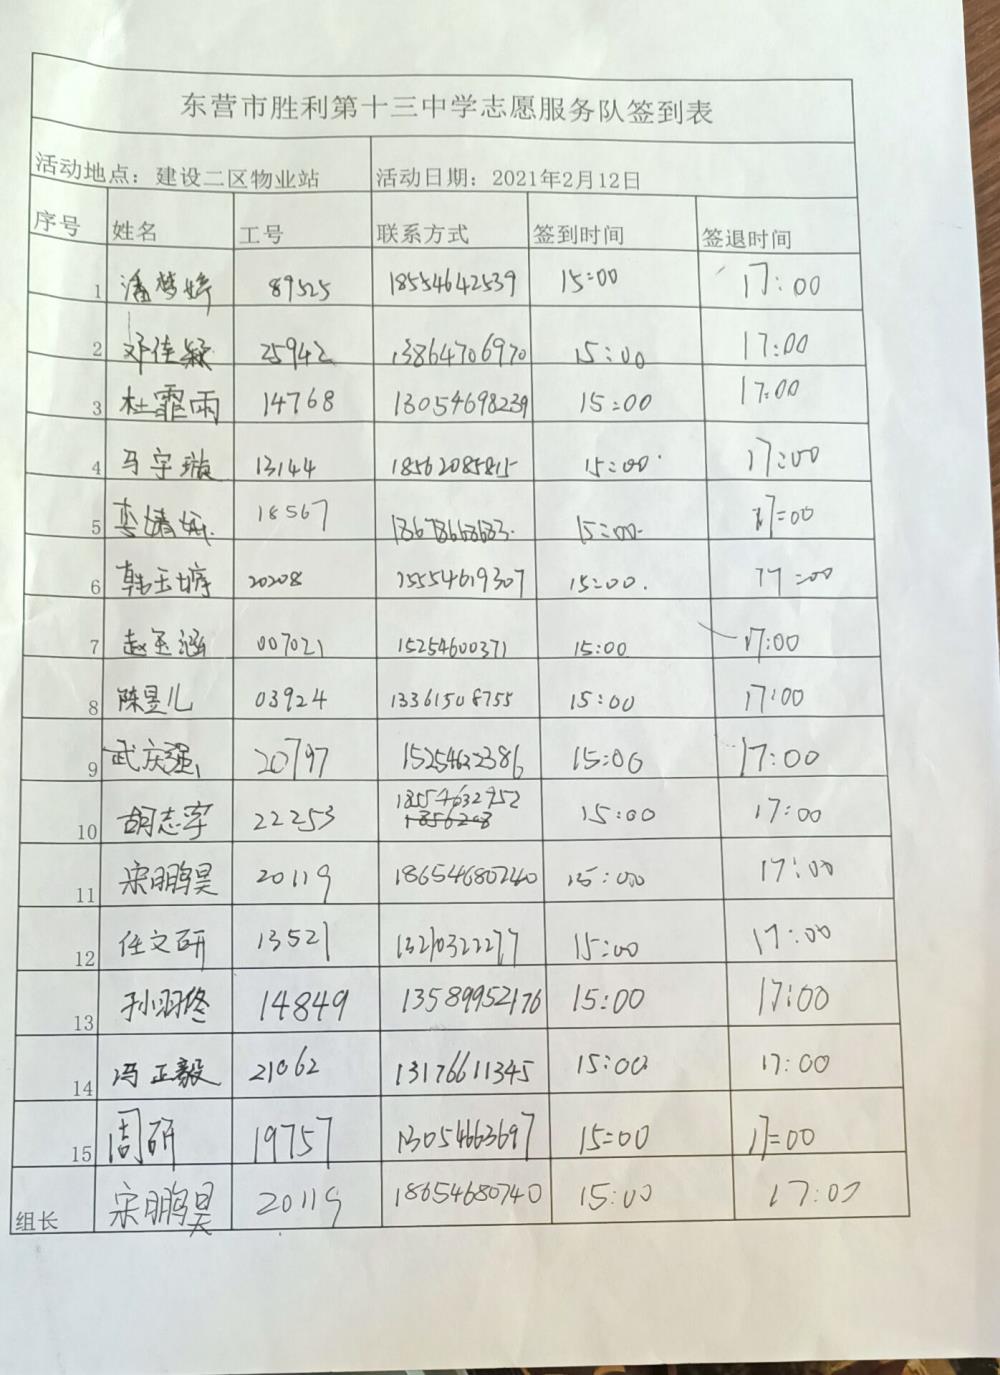 东营市胜利第十三中学志愿服务队签到表
活动地点：建设二区物业站 活动日期：2021年2月12日
序号 姓名 工号 联系方式 签到时间 签退时间
1 潘梦婷 89525 18554642539 15:00 17:00
2 邓佳凝 25942 13864706970 15:00 17:00
3 杜霏雨 14768 13054698239 15:00 17:00
4 马宇璇 13144 18562085815 15:00 17:00
5 18567 15:00 17:00
6 韩玉婷 20208 15554619307 15:00 17:00
7 赵玉涵 007021 15254600371 15:00 17:00
8 陈昱儿 03924 13361508755 15:00 17:00
9 武庆强 20797 15254622386 15:00 17:00
10 胡志宇 22253 18554632952 15:00 17:00
11 宋鹏昊 20119 18654680740 15:00 17:00
12 任文研 13521 13210322277 15:00 17:00
13 孙羽佟 14849 13589952176 15:00 17:00
14 冯正毅 21062 13176611345 15:00 17:00
15 周研 19757 13054663697 15:00 17:00
组长 宋鹏昊 20119 18654680740 15:00 17:00